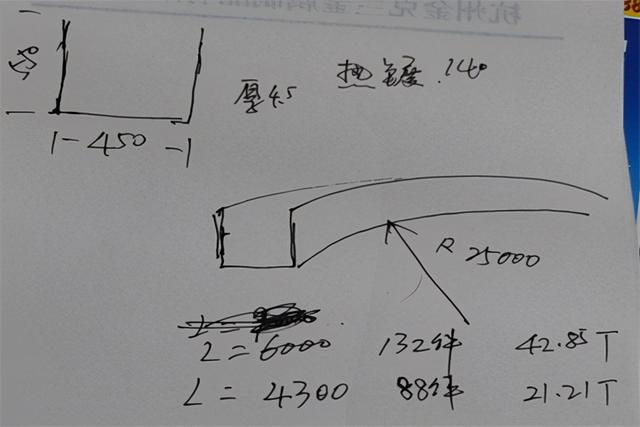 450
厚4.5
热镀.140
R 25000
L=6000 132件 42.85T
L=4300 88件 21.21T